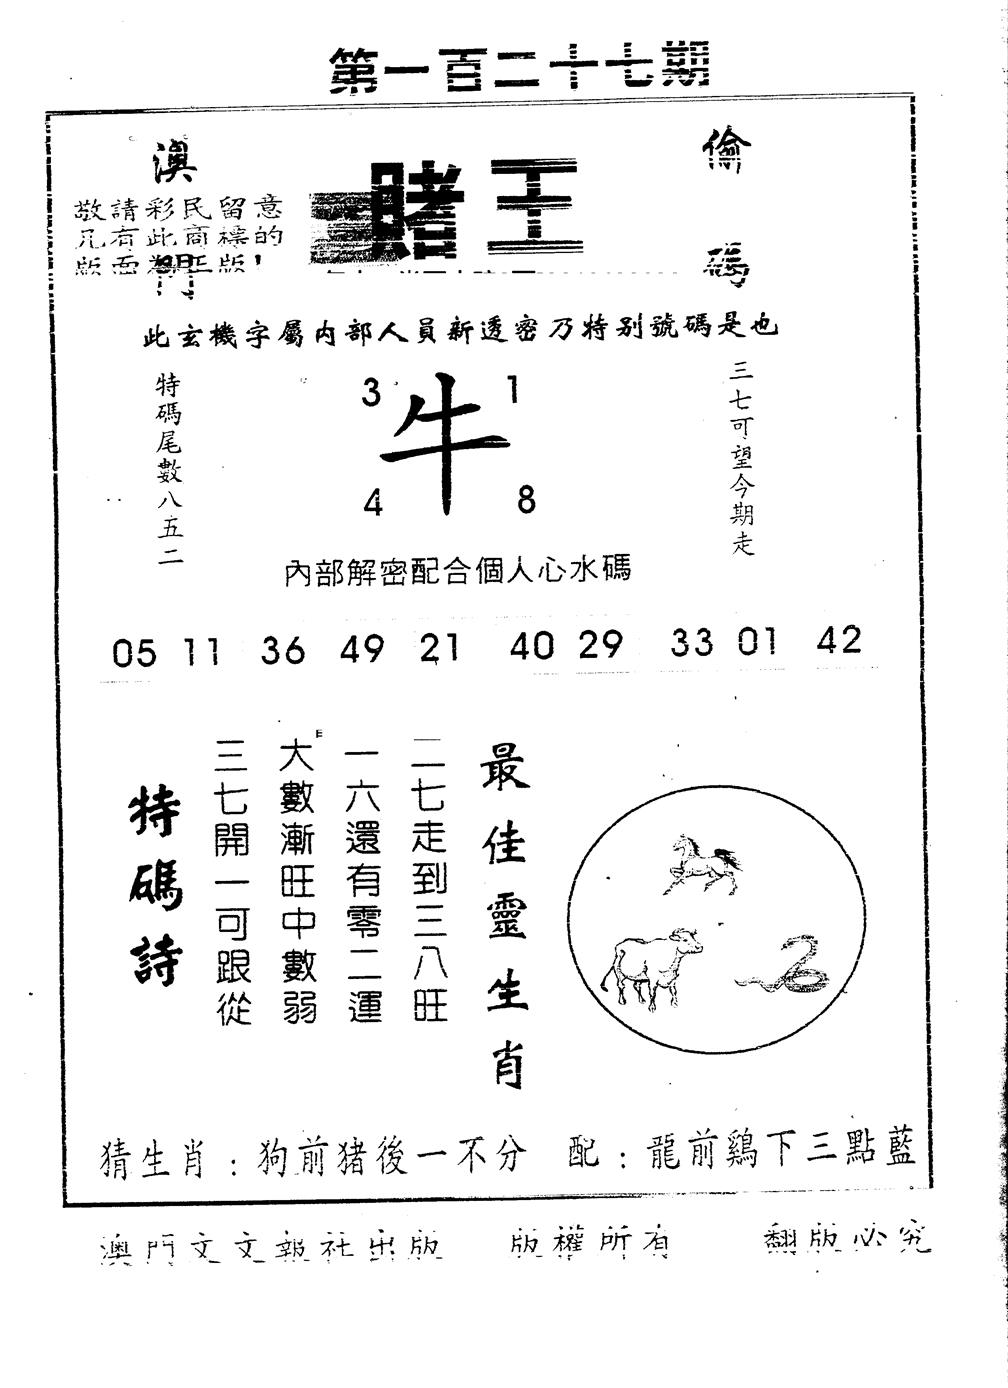 第一百二十七期
澳門
賭王
偷碼
敬請彩民留意
凡有此商標的
版面為正版!
此玄機字屬内部人員新透密乃特别號碼是也
特碼尾數八五二
3 1
牛
4 8
三七可望今期走
內部解密配合個人心水碼
05 11 36 49 21 40 29 33 01 42
最佳靈生肖
二七走到三八旺
一六還有零二運
大數漸旺中數弱
三七開一可跟從
特碼詩
猜生肖：狗前猪後一不分 配：龍前鷄下三點藍
澳門文文報社出版 版權所有 翻版必究